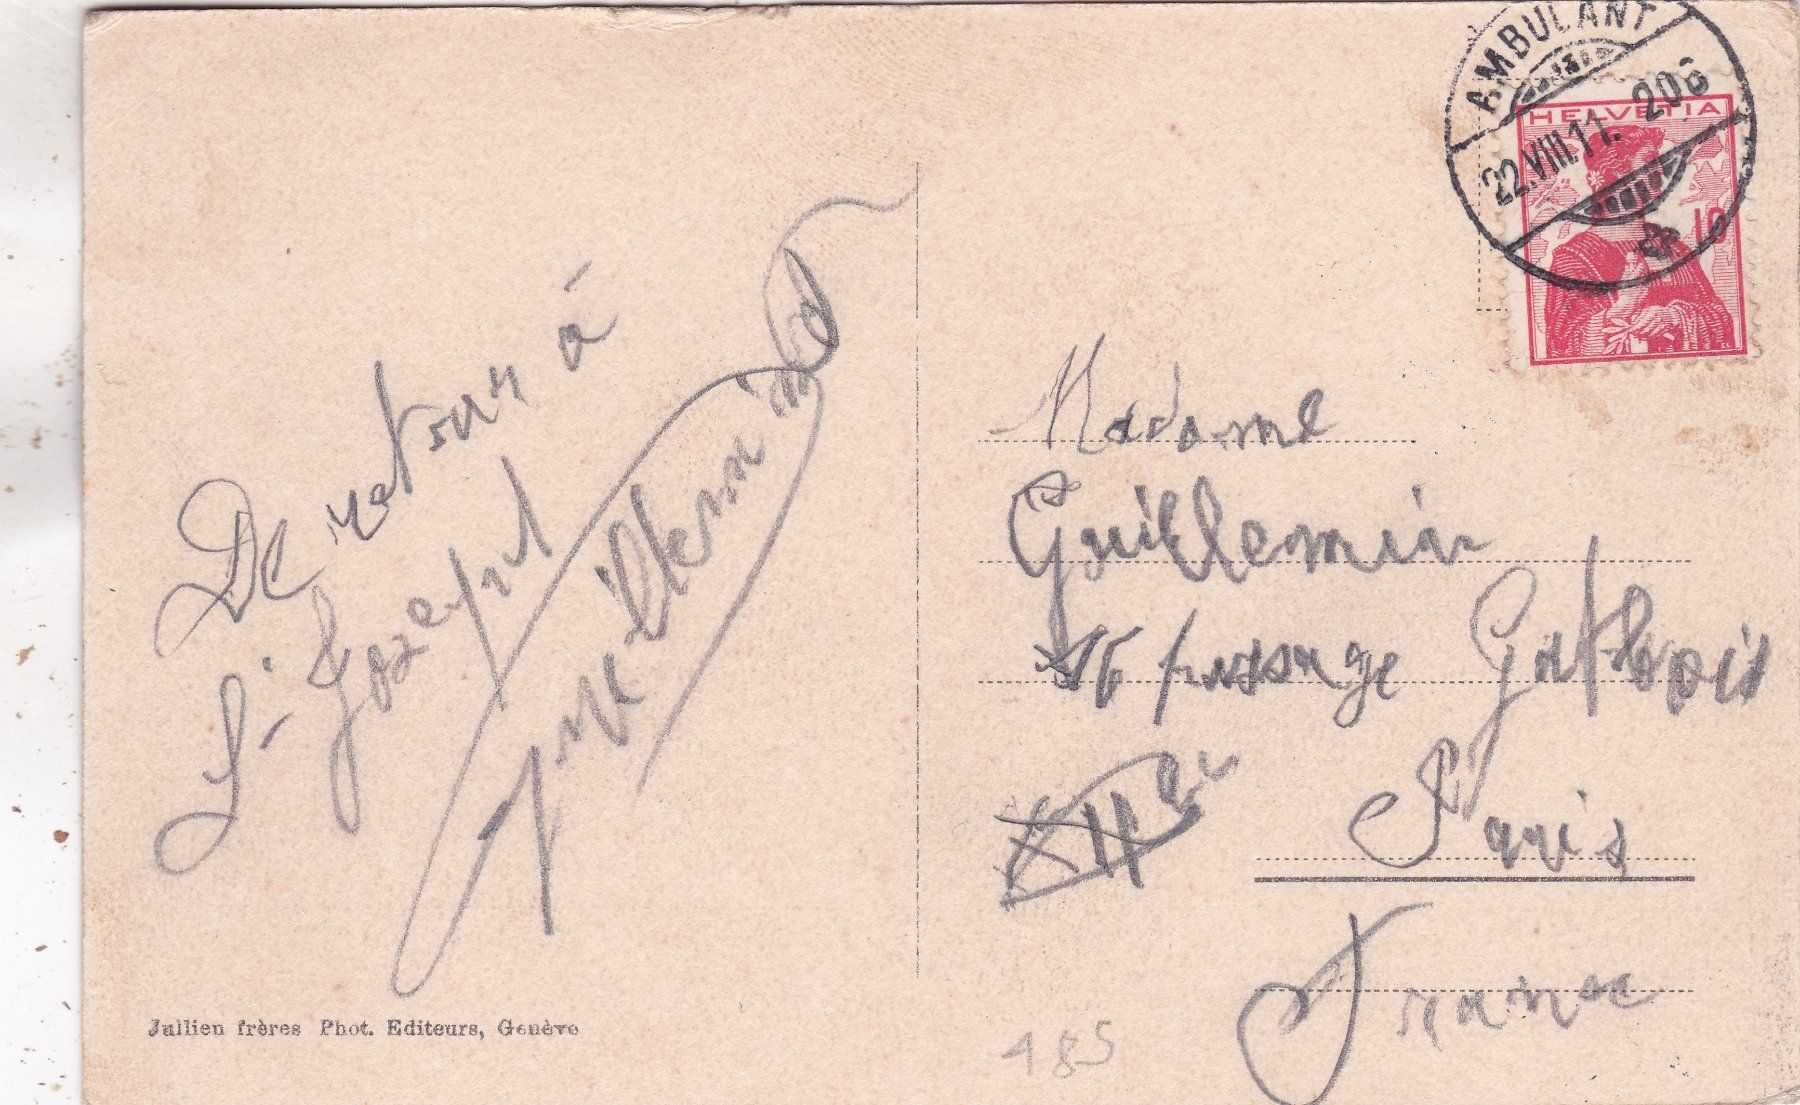 De retour à
St Joseph
Guillemind
Jullien frères Phot. Editeurs, Genève
AMBULANT
22.VIII.11. 206
HELVETIA
10
Madame
Guillemin
16 passage Gatbois
Paris
XIIe
France
185